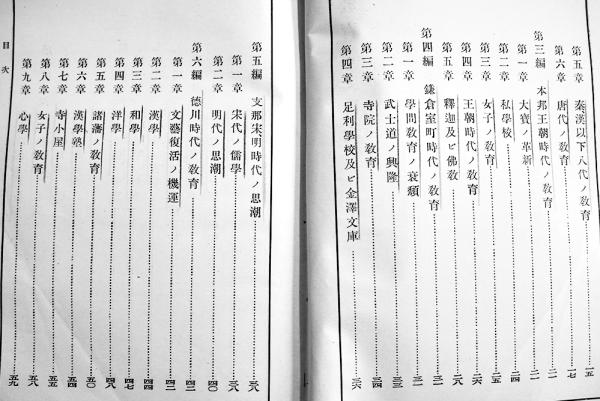 第五章 秦漢以下八代ノ教育 一五
第六章 唐代ノ教育 一七
第三編 本邦王朝時代ノ教育 二一
第一章 大寶ノ革新 二一
第二章 私學校 二四
第三章 女子ノ教育 二五
第四章 王朝時代ノ教育 二六
第五章 釋迦及ビ佛教 二八
第四編 鎌倉室町時代ノ教育 三二
第一章 學問教育ノ衰頽 三二
第二章 武士道ノ興隆 三三
第三章 寺院ノ教育 三四
第四章 足利學校及ビ金澤文庫 三六
第五編 支那宋明時代ノ思潮 三八
第一章 宋代ノ儒學 三八
第二章 明代ノ思潮 四〇
第六編 德川時代ノ教育 四二
第一章 文藝復活ノ機運 四二
第二章 漢學 四四
第三章 和學 四七
第四章 洋學 四八
第五章 諸藩ノ教育 五〇
第六章 漢學塾 五四
第七章 寺小屋 五五
第八章 女子ノ教育 五八
第九章 心學 五九
目次